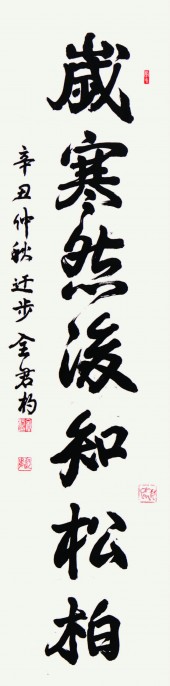 歲寒然後知松柏
辛丑仲秋 迂步 金君杓